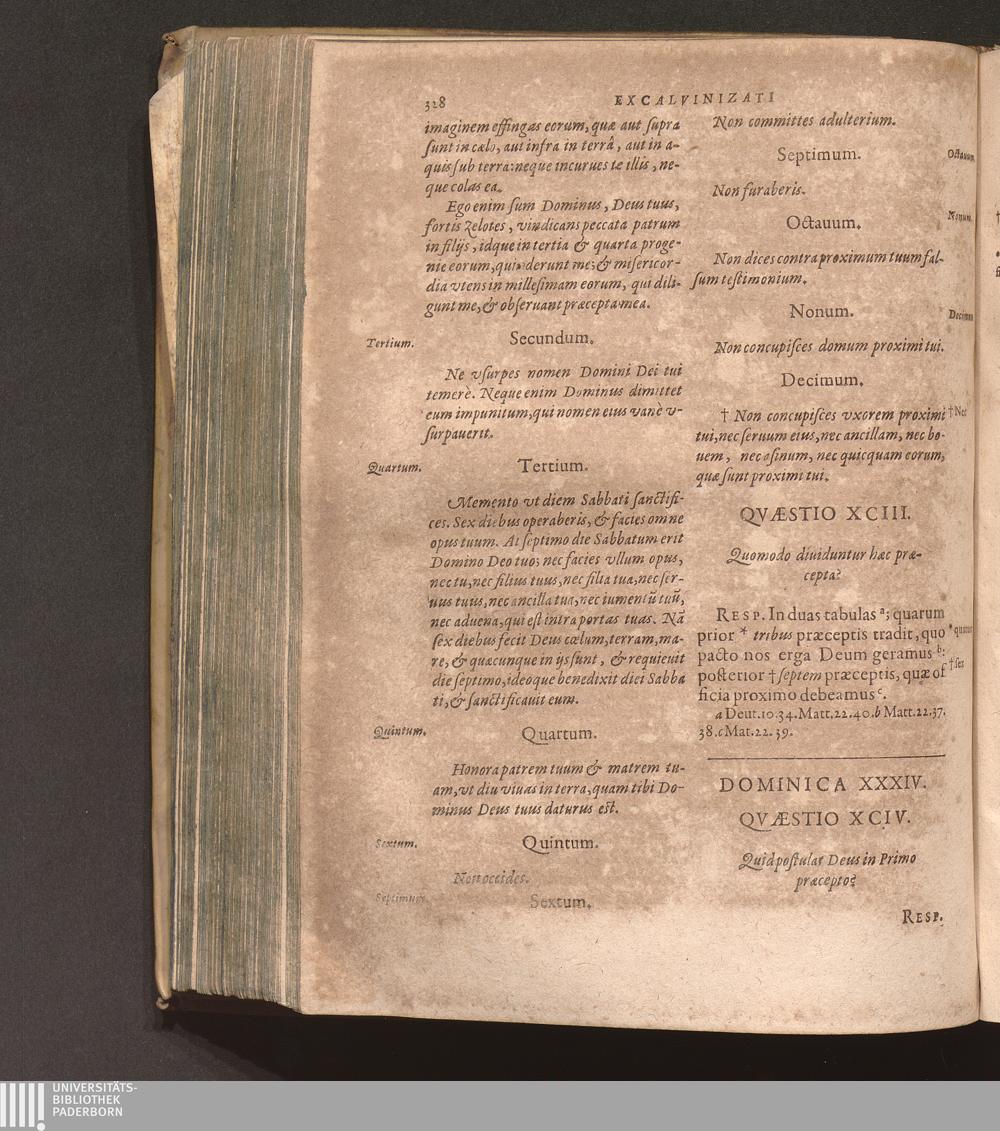 328
EXCALVINIZATI
imaginem effingas eorum, quæ aut supra
sunt in cælo, aut infra in terrâ, aut in a-
quis sub terra: neque incurues te illis, ne-
que colas ea.
Ego enim sum Dominus, Deus tuus,
fortis Zelotes, vindicans peccata patrum
in filijs, idque in tertia & quarta proge-
nie eorum, qui oderunt me; & misericor-
dia vtens in millesimam eorum, qui dili-
gunt me, & obseruant præcepta mea.
Tertium.
Secundum.
Ne vsurpes nomen Domini Dei tui
temerè. Neque enim Dominus dimittet
eum impunitum, qui nomen eius vanè v-
surpauerit.
Quartum.
Tertium.
Memento vt diem Sabbati sanctifi-
ces. Sex diebus operaberis, & facies omne
opus tuum. At septimo die Sabbatum erit
Domino Deo tuo; nec facies vllum opus,
nec tu, nec filius tuus, nec filia tua, nec ser-
uus tuus, nec ancilla tua, nec iumentũ tuũ,
nec aduena, qui est intra portas tuas. Nã
sex diebus fecit Deus cœlum, terram, ma-
re, & quæcunque in ijs sunt, & requieuit
die septimo, ideoque benedixit diei Sabba
ti, & sanctificauit eum.
Quintum.
Quartum.
Honora patrem tuum & matrem tu-
am, vt diu viuas in terra, quam tibi Do-
minus Deus tuus daturus est.
Sextum.
Quintum.
Non occides.
Septimum.
Sextum.
Non committes adulterium.
Septimum.
Octauum.
Non furaberis.
Octauum.
Nonum.
Non dices contra proximum tuum fal-
sum testimonium.
Nonum.
Decimum
Non concupisces domum proximi tui.
Decimum.
† Non concupisces vxorem proximi
† Nec
tui, nec seruum eius, nec ancillam, nec bo-
uem, nec asinum, nec quicquam eorum,
quæ sunt proximi tui.
QVÆSTIO XCIII.
Quomodo diuiduntur hæc præ-
cepta?
RESP. In duas tabulas a; quarum
prior * tribus præceptis tradit, quo
pacto nos erga Deum geramus b:
posterior † septem præceptis, quæ of
† sex
ficia proximo debeamus c.
a Deut. 10. 34. Matt. 22. 40. b Matt. 22. 37.
38. c Mat. 22. 39.
DOMINICA XXXIV.
QVÆSTIO XCIV.
Quid postulat Deus in Primo
præcepto?
RESP.
UNIVERSITÄTS-
BIBLIOTHEK
PADERBORN